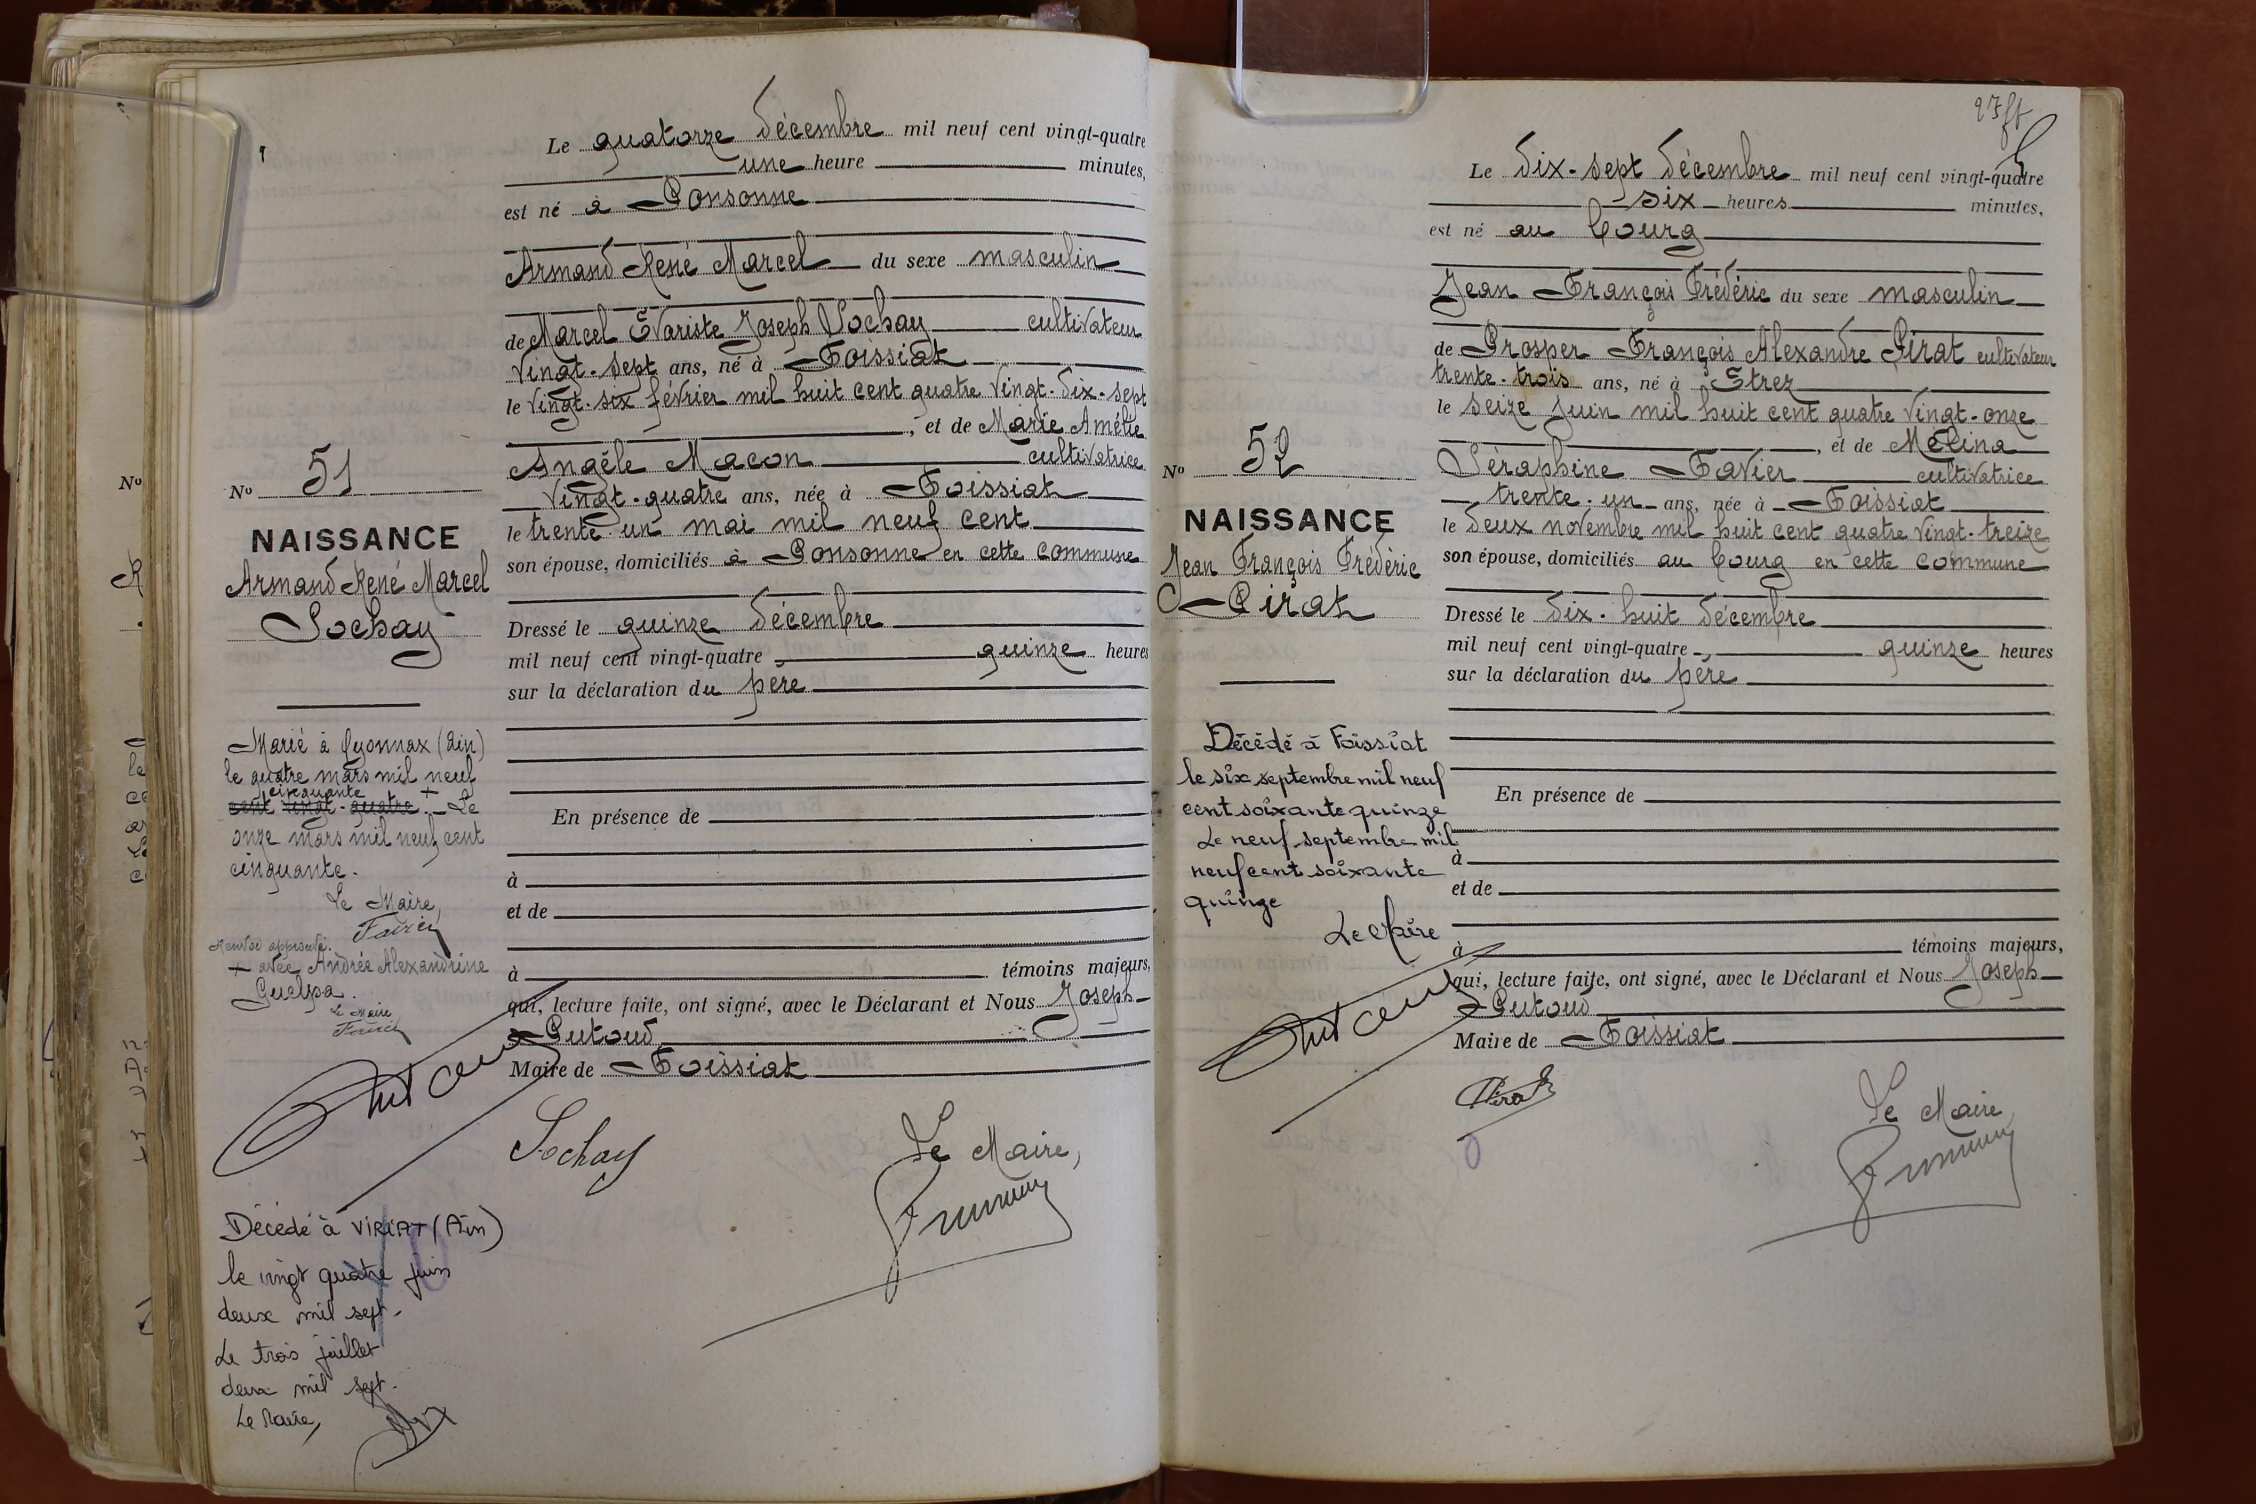 Le quatorze décembre mil neuf cent vingt-quatre
une heure minutes,
est né à Ponsonne
Armand René Marcel du sexe masculin
de Marcel Evariste Joseph Sochay cultivateur
vingt-sept ans, né à Foissiat
le vingt-six février mil huit cent quatre vingt-dix-sept
, et de Marie Amélie
Angèle Macon cultivatrice
vingt-quatre ans, née à Foissiat
le trente-un mai mil neuf cent
son épouse, domiciliés à Ponsonne en cette commune
Dressé le quinze décembre
mil neuf cent vingt-quatre, quinze heures
sur la déclaration du père
En présence de
à
et de
à témoins majeurs,
qui, lecture faite, ont signé, avec le Déclarant et Nous Joseph
Putoud
Maire de Foissiat
Sochay
Le Maire,
No 51
NAISSANCE
Armand René Marcel
Sochay
Marié à Oyonnax (Ain)
le quatre mars mil neuf
cinquante +
cent vingt-quatre. - Le
onze mars mil neuf cent
cinquante.
Le Maire,
approuvé.
+ avec Andrée Alexandrine
Guelpa.
Le Maire
Décédé à VIRIAT (Ain)
le vingt quatre juin
deux mil sept.
Le trois juillet
deux mil sept.
Le Maire,
27
Le dix-sept décembre mil neuf cent vingt-quatre
six heures minutes,
est né au bourg
Jean François Frédéric du sexe masculin
de Prosper François Alexandre Pirat cultivateur
trente-trois ans, né à Etrez
le seize juin mil huit cent quatre vingt-onze
, et de Mélina
Séraphine Favier cultivatrice
trente-un ans, née à Foissiat
le deux novembre mil huit cent quatre vingt-treize
son épouse, domiciliés au bourg en cette commune
Dressé le dix-huit décembre
mil neuf cent vingt-quatre, quinze heures
sur la déclaration du père
En présence de
à
et de
à témoins majeurs,
qui, lecture faite, ont signé, avec le Déclarant et Nous Joseph
Putoud
Maire de Foissiat
Pirat
Le Maire
No 52
NAISSANCE
Jean François Frédéric
Pirat
Décédé à Foissiat
le six septembre mil neuf
cent soixante quinze
Le neuf septembre mil
neuf cent soixante
quinze
Le Maire